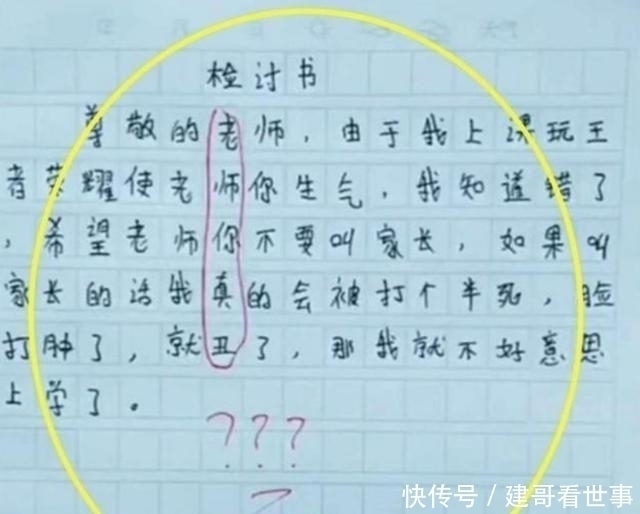 检讨书
尊敬的老师，由于我上课玩王
者荣耀使老师你生气，我知道错了
，希望老师你不要叫家长，如果叫
家长的话我真的会被打个半死，脸
打肿了，就丑了，那我就不好意思
上学了。
???
?
快传号／建哥看世事